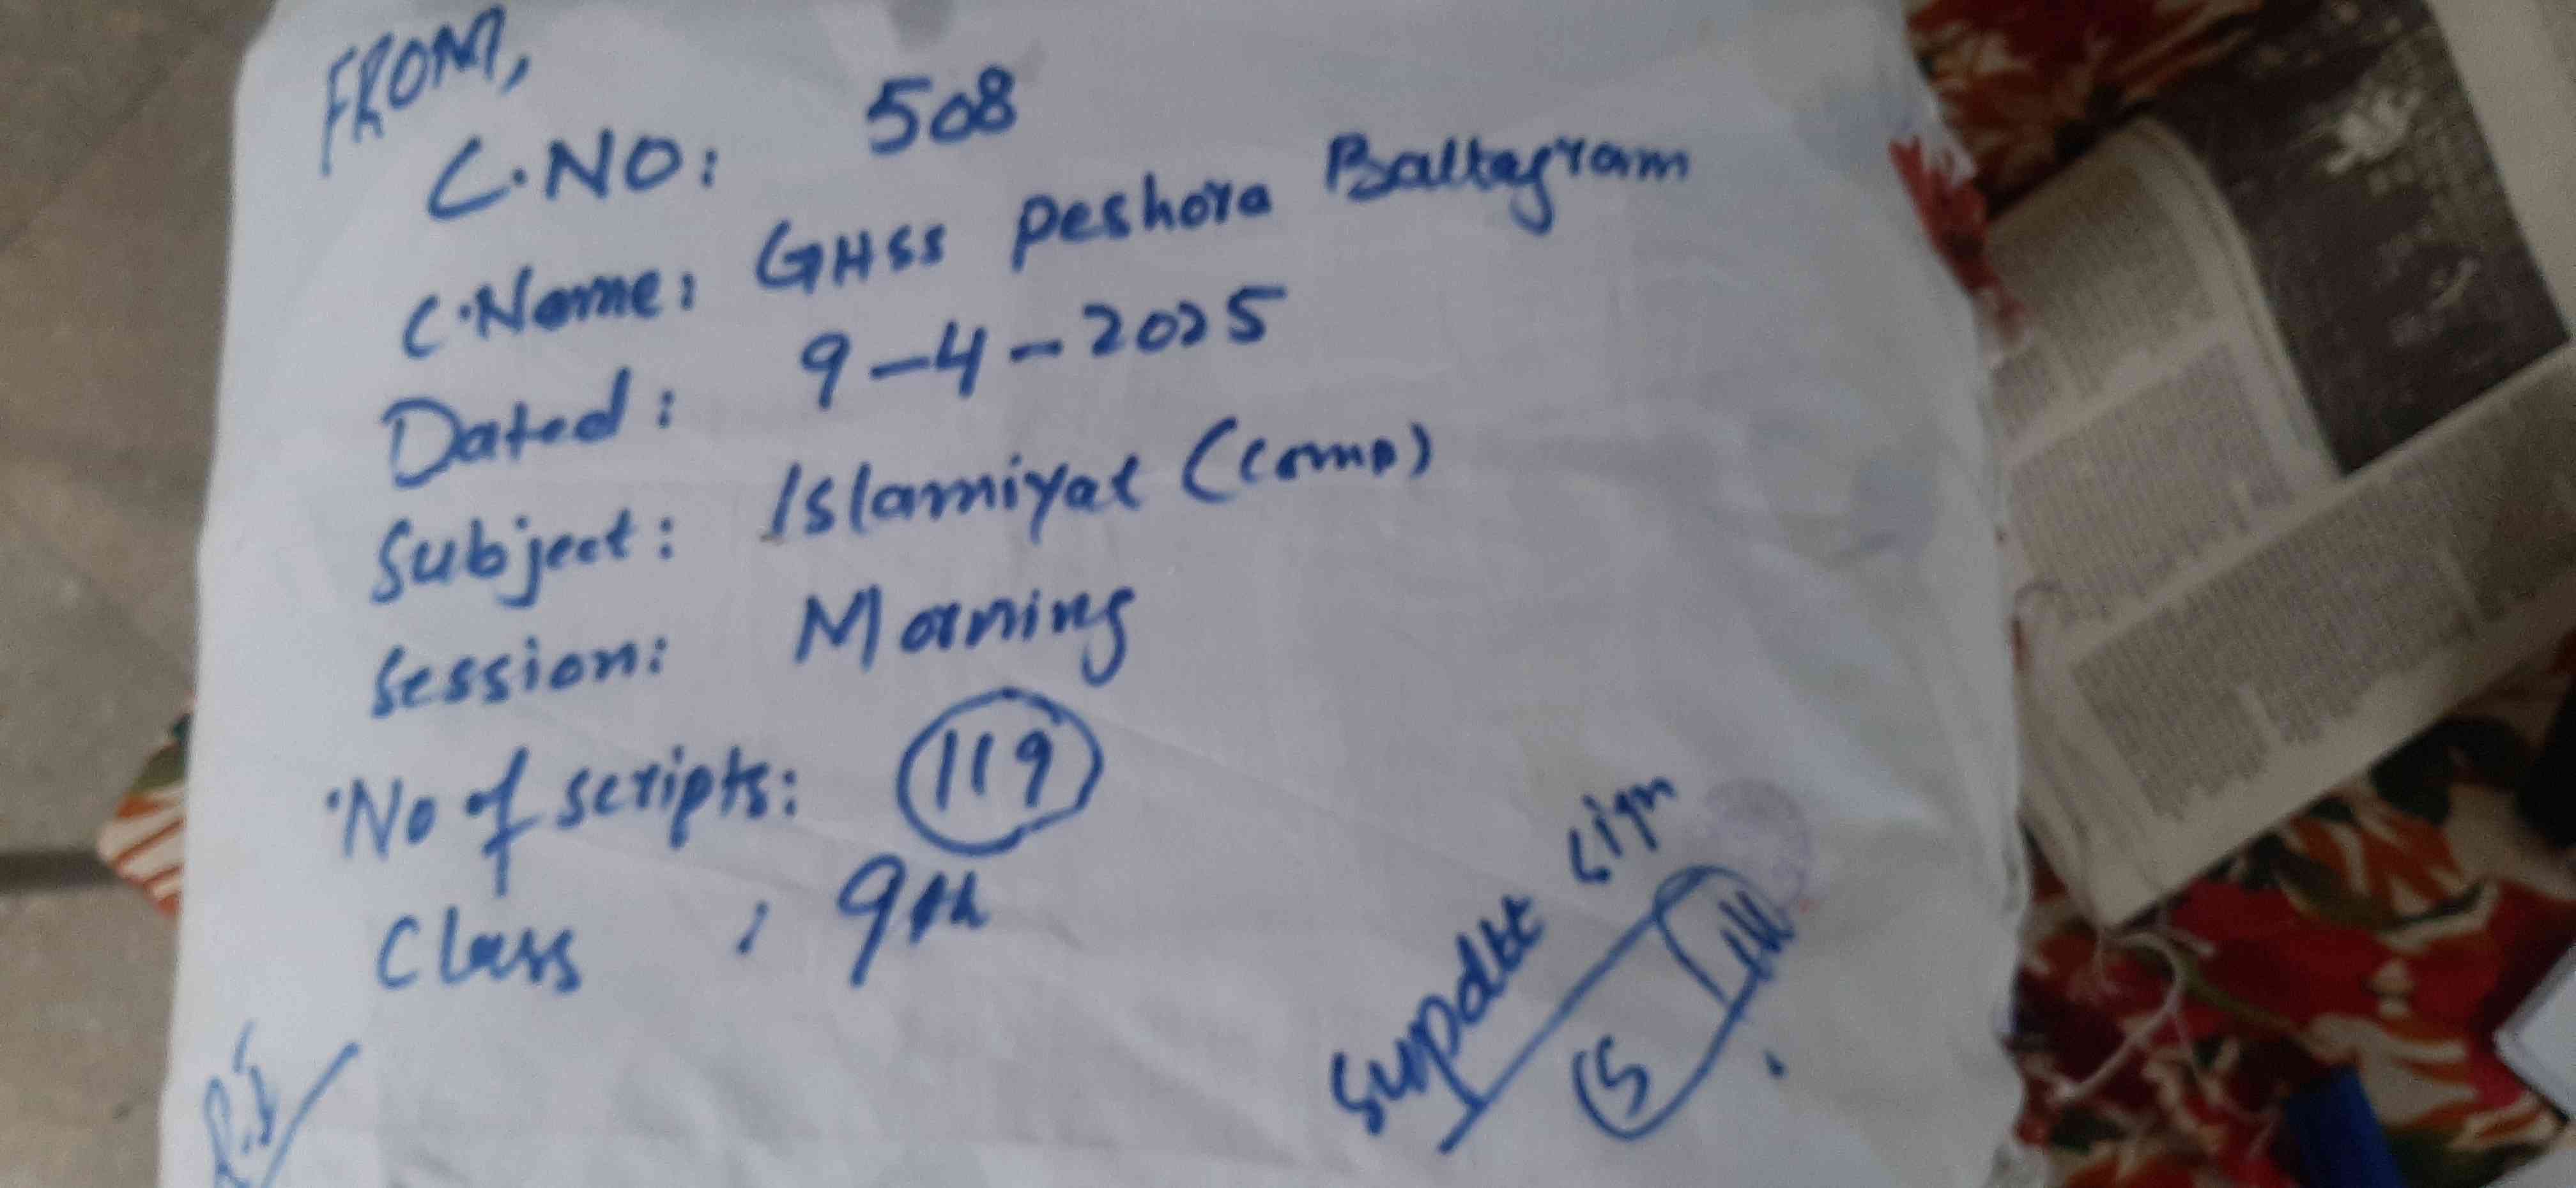 FROM,
C.NO: 508
C.Name: GHSS Peshora Battagram
Dated: 9-4-2025
Subject: Islamiyat (Comp)
Session: Morning
No of scripts: 119
Class : 9th
Supdtt sign